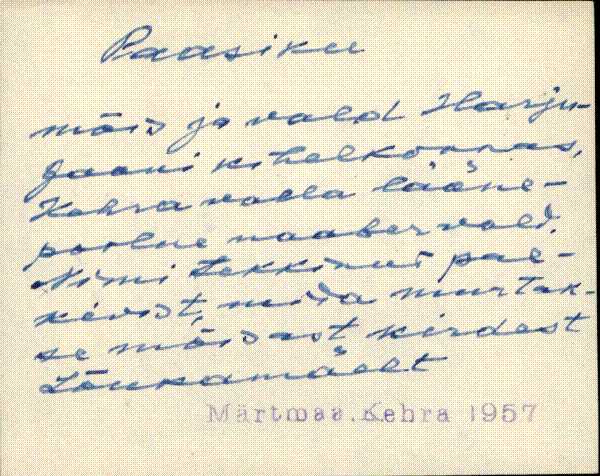 Paasiku
mõis ja vald Harju-
Jaani kihelkonnas,
Kehra valla lääne-
poolne naabervald.
Nimi tekkinud pae-
kivist, mida murtak-
se mõisast kirdest
Lõukamäelt
Märtmaa.Kehra 1957